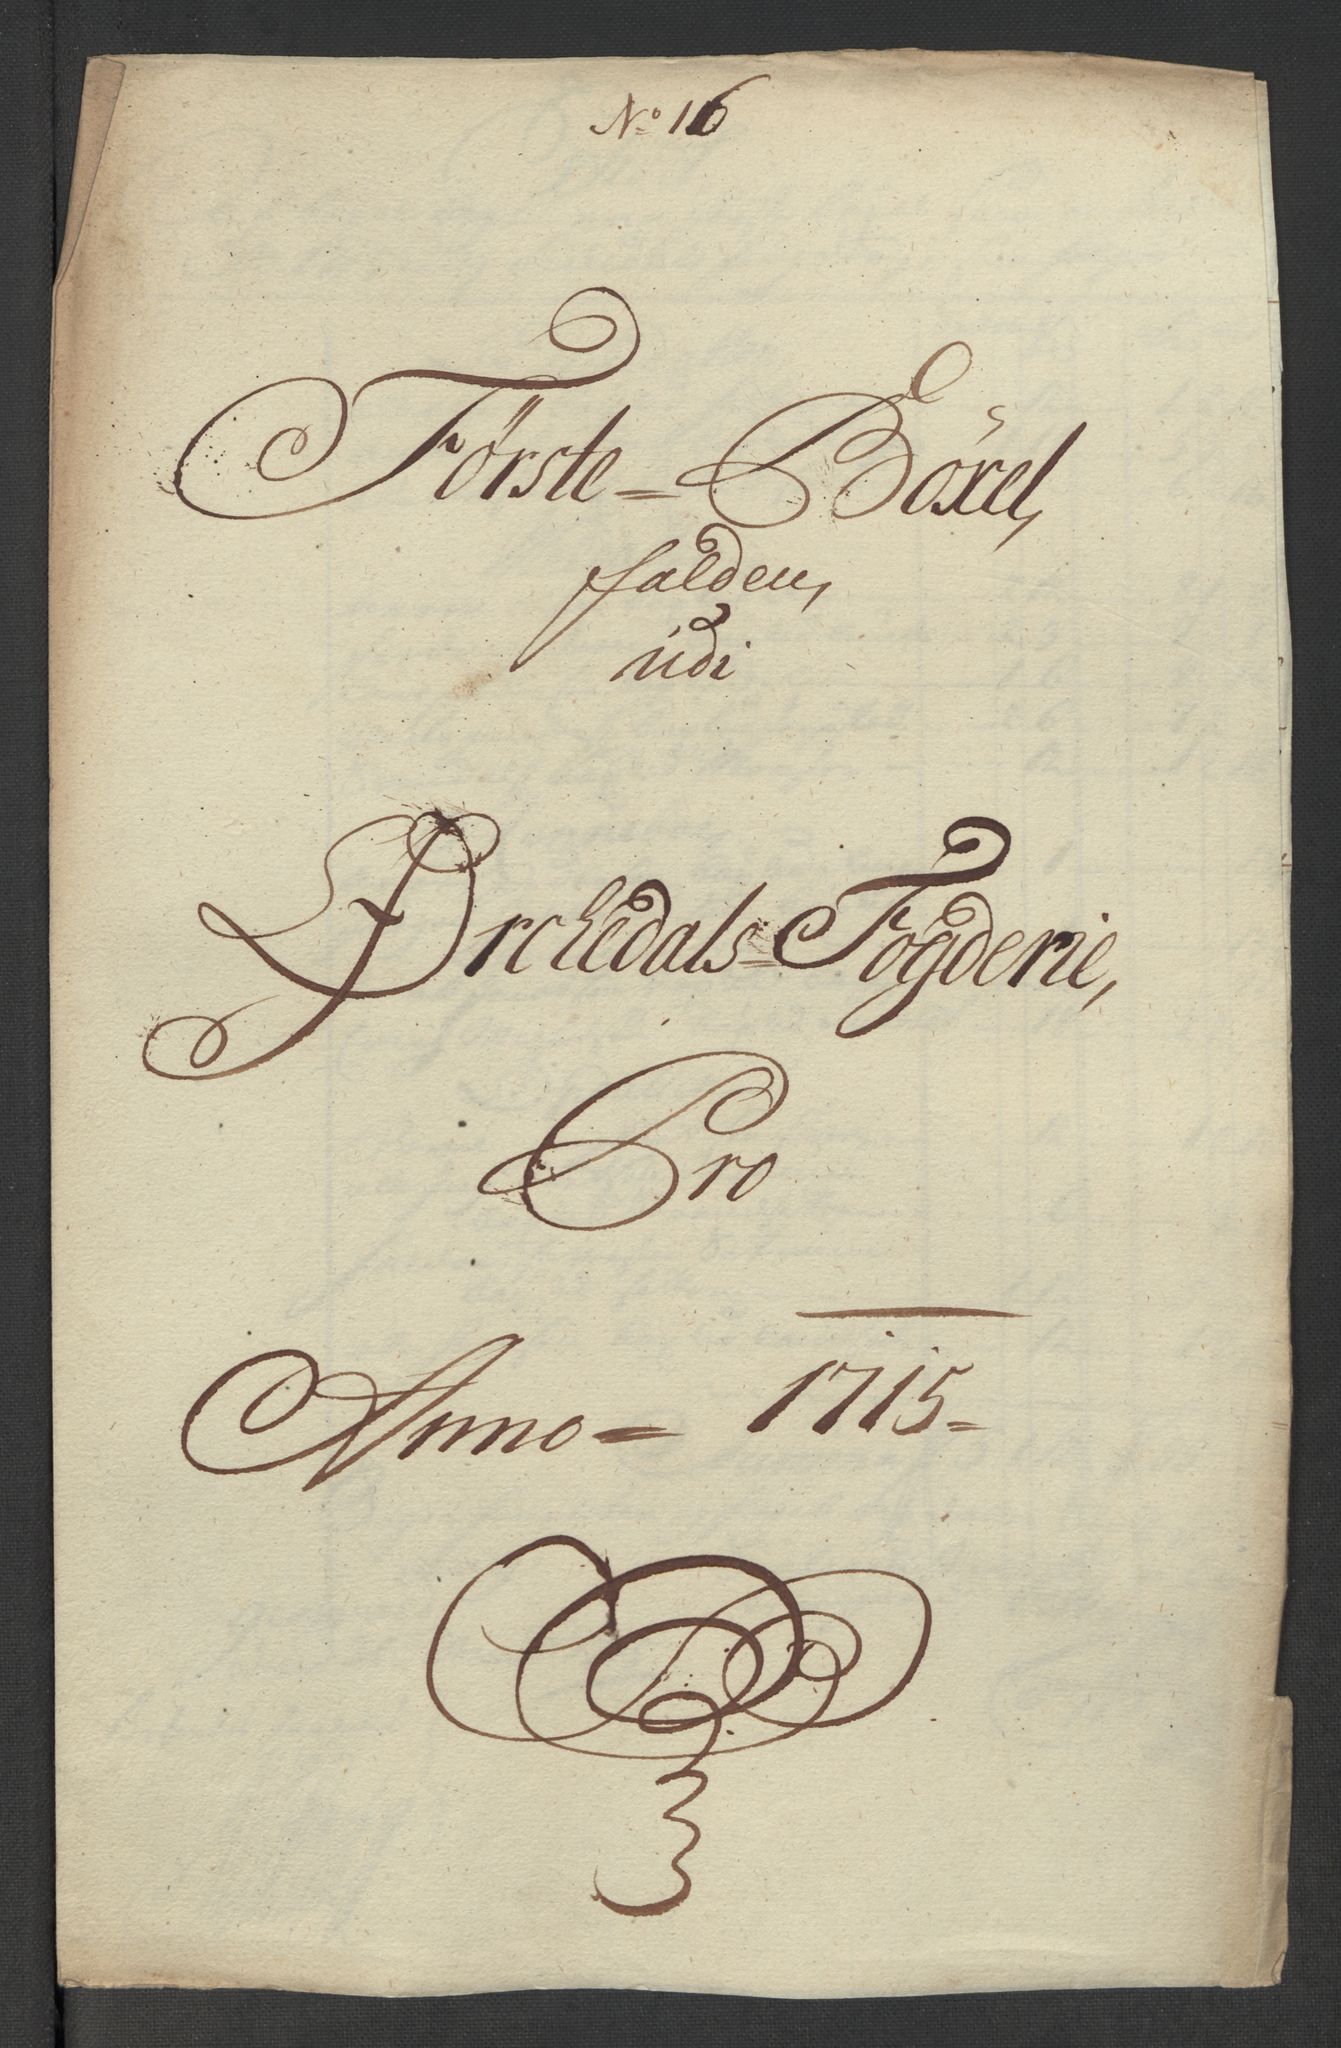 No 16
Första = Böxel,
falden,
udi
Ørchedals = Fogderie,
Pro
Anno = 1715 =